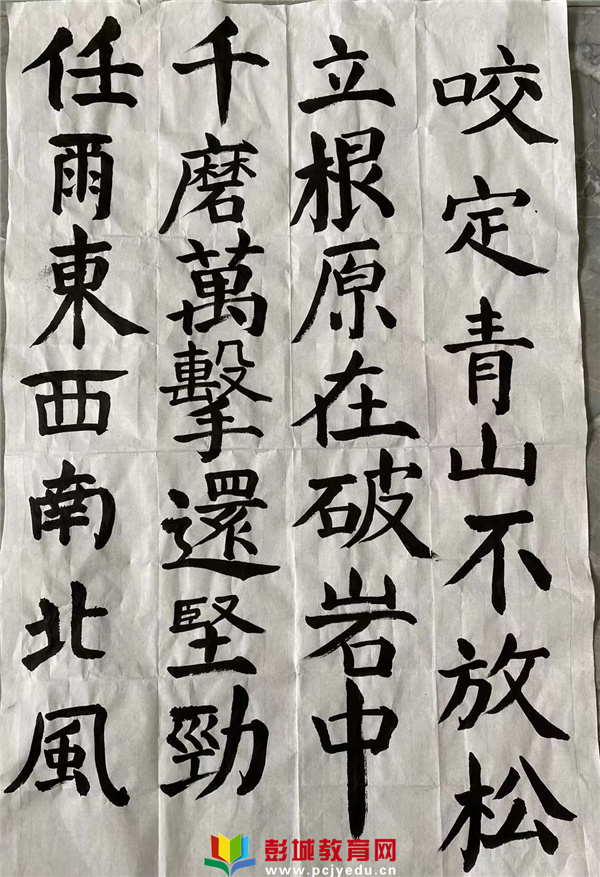 咬定青山不放松
立根原在破岩中
千磨萬擊還堅勁
任爾東西南北風
彭城教育网
www.pcjyedu.cn